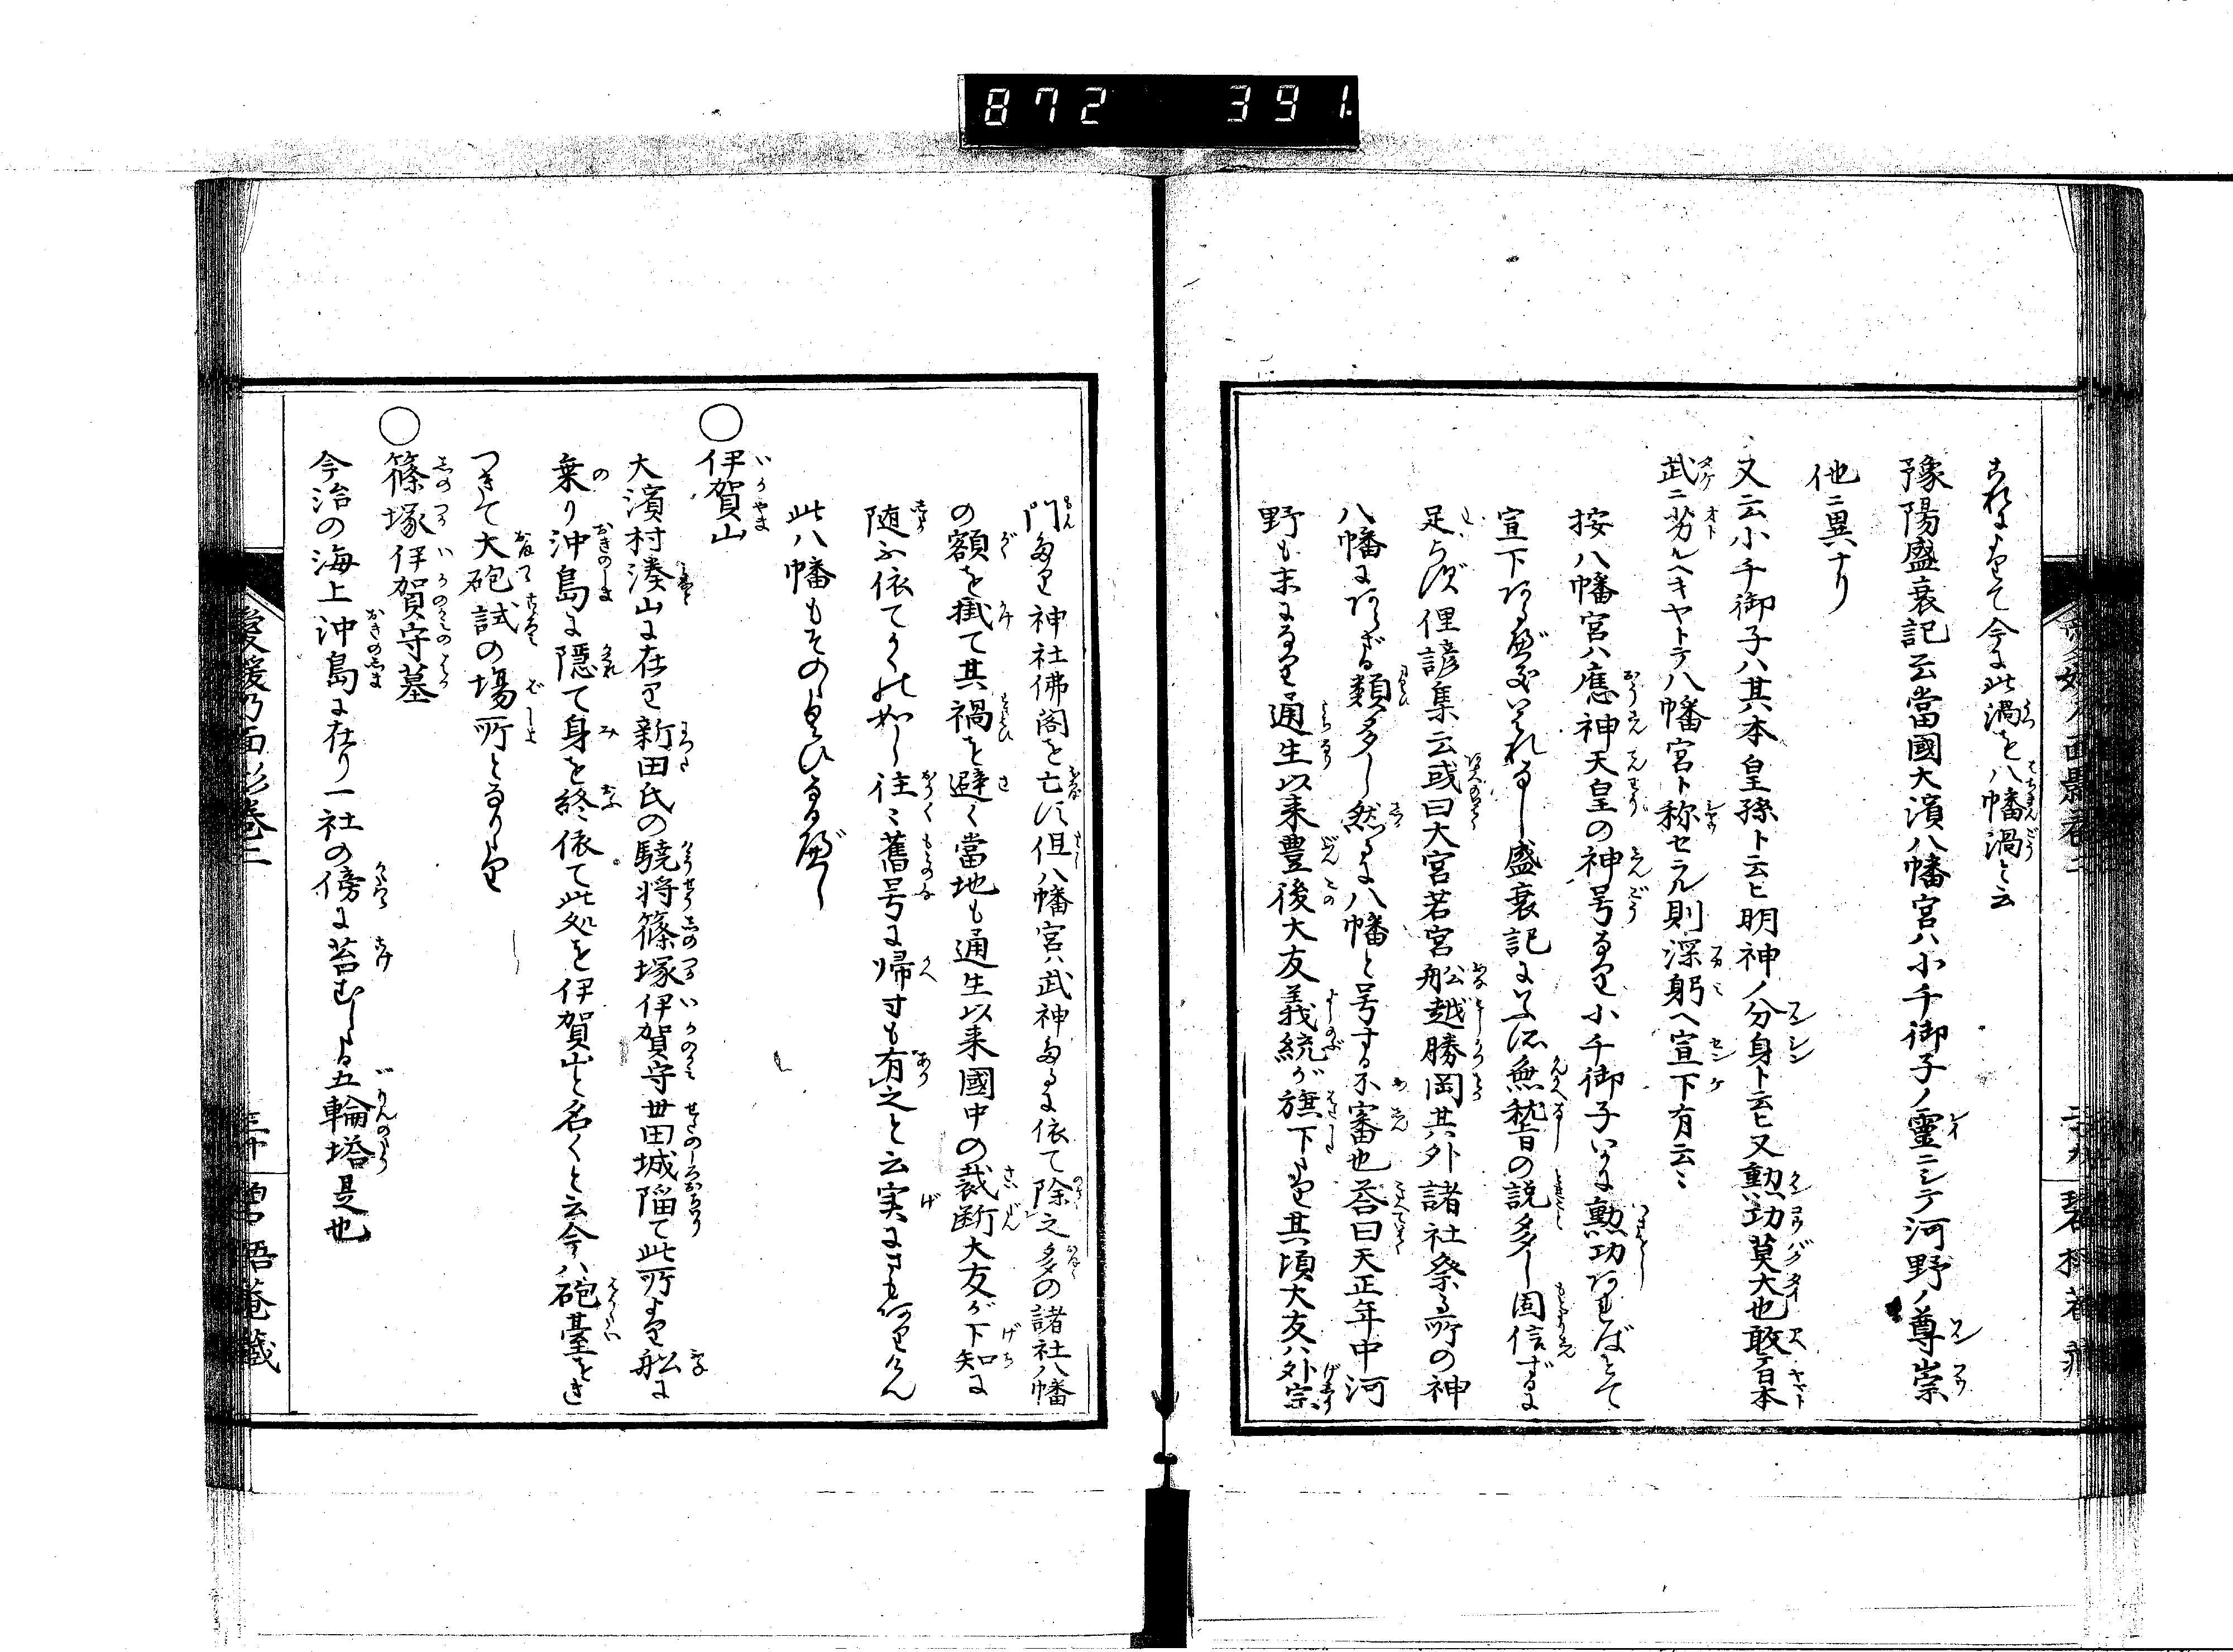 872 391
これによりて今に此渦を八幡渦と云
豫陽盛衰記云當國大濱八幡宮ハ小千御子ノ靈ニシテ河野ノ尊崇
他ニ異ナリ
又云小千御子ハ其本皇孫ト云ヒ明神ノ分身ト云ヒ又勲功莫大也敢テ日本
武ニ劣ルヘキヤトテ八幡宮ト称セラル則深躬ヘ宣下有云〻
按八幡宮ハ應神天皇の神号なり小千御子いかに勲功あればとて
宣下あるべきいはれなし盛衰記にハ無稽の説多し固信ずるに
足らず俚諺集云或曰大宮若宮船越勝岡其外諸社祭る所の神
八幡にあらざる類多し然るに八幡と号する不審也答曰天正年中河
野も末になり通生以来豊後大友義統が旗下たり其頃大友ハ外宗
門たり神社佛閣を亡す但八幡宮ハ武神たるに依て除之多の諸社八幡
の額を掛て其禍を避く當地も通生以来國中の裁断大友が下知に
随ふ依てかくの如し往〻舊号に帰すも有之と云実にさも有りけん
此八幡もそのたぐひなるべし
○伊賀山
大濱村湊山に在り新田氏の驍将篠塚伊賀守世田城陥て此所より船に
乗り沖島に隠て身を終依て此処を伊賀山と名くと云今ハ砲臺をき
つきて大砲試の場所となりたり
○篠塚伊賀守墓
今治の海上沖島に在り一社の傍に苔むしたる五輪塔是也
愛媛乃面影巻二